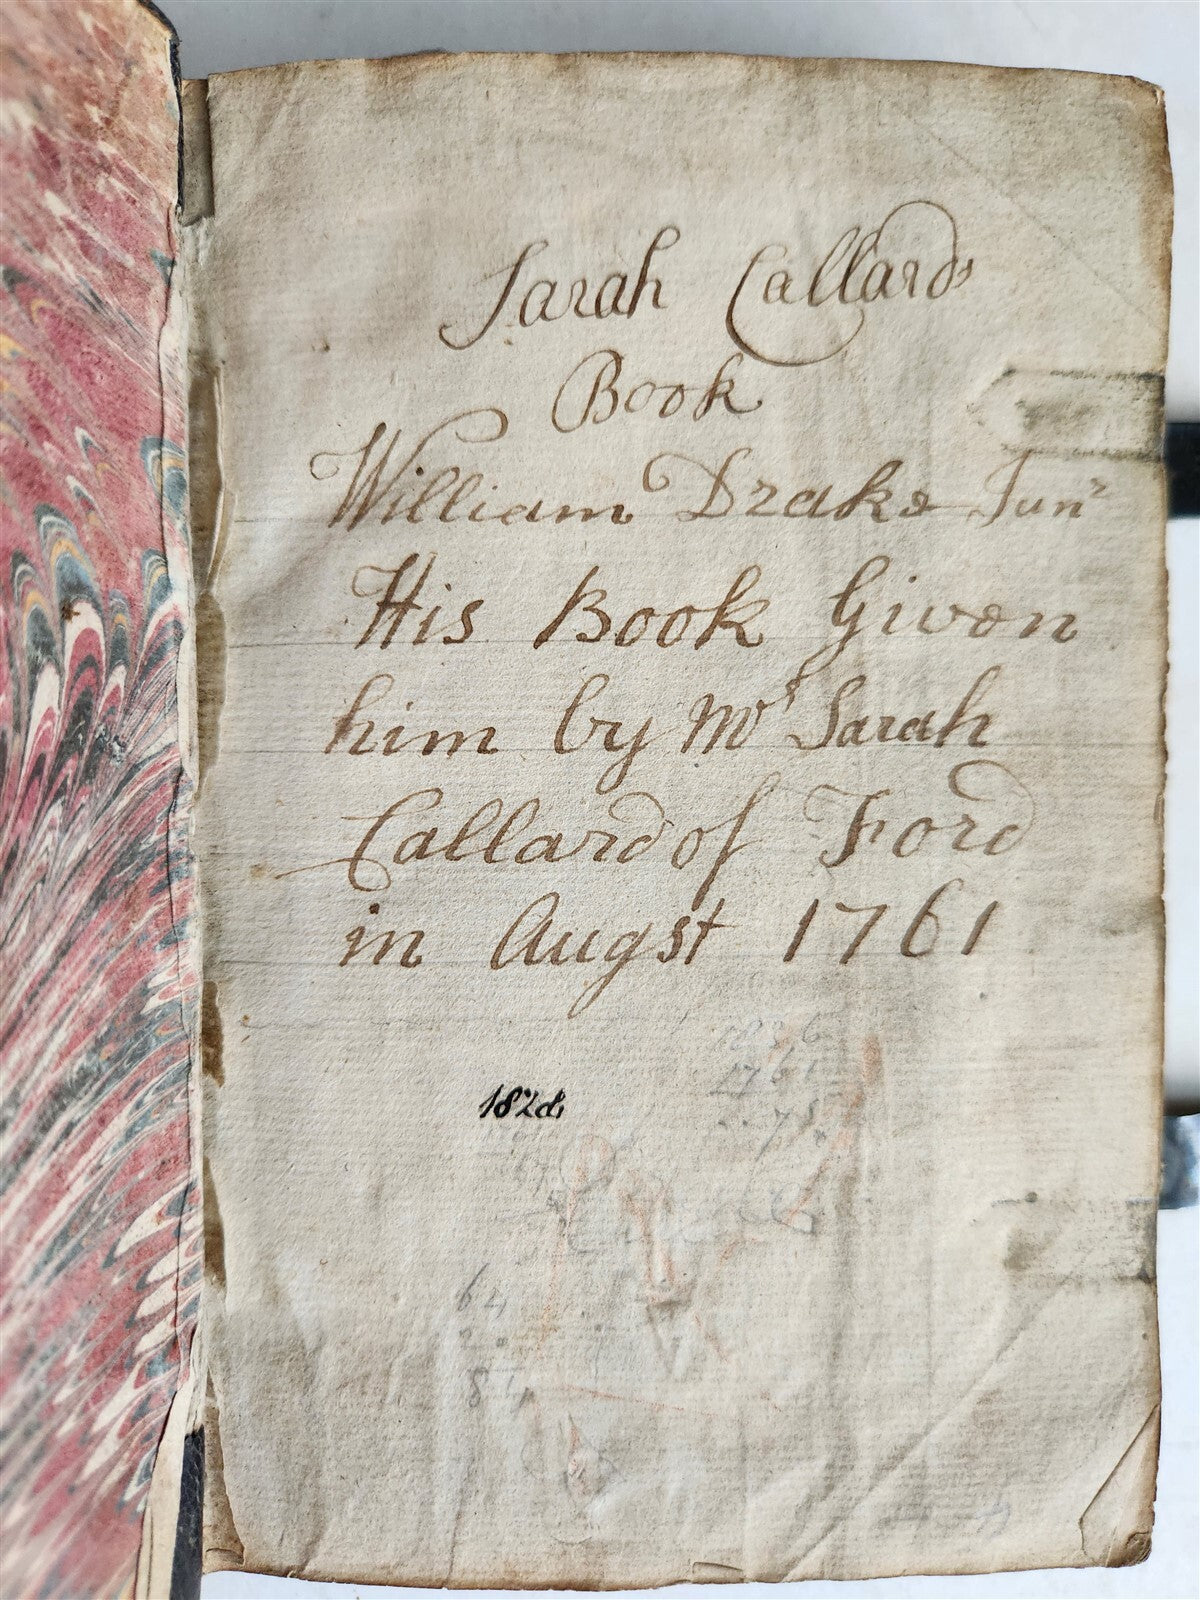 Sarah Callards
Book
William Drake Junr
His Book Given
him by Mrs Sarah
Callard of Ford
in Augst 1761
1761
64